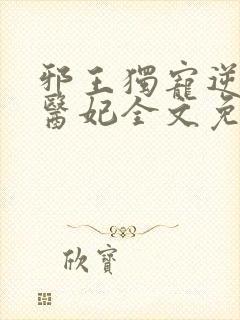 邪王獨寵逆
醫妃全文免
欣寶